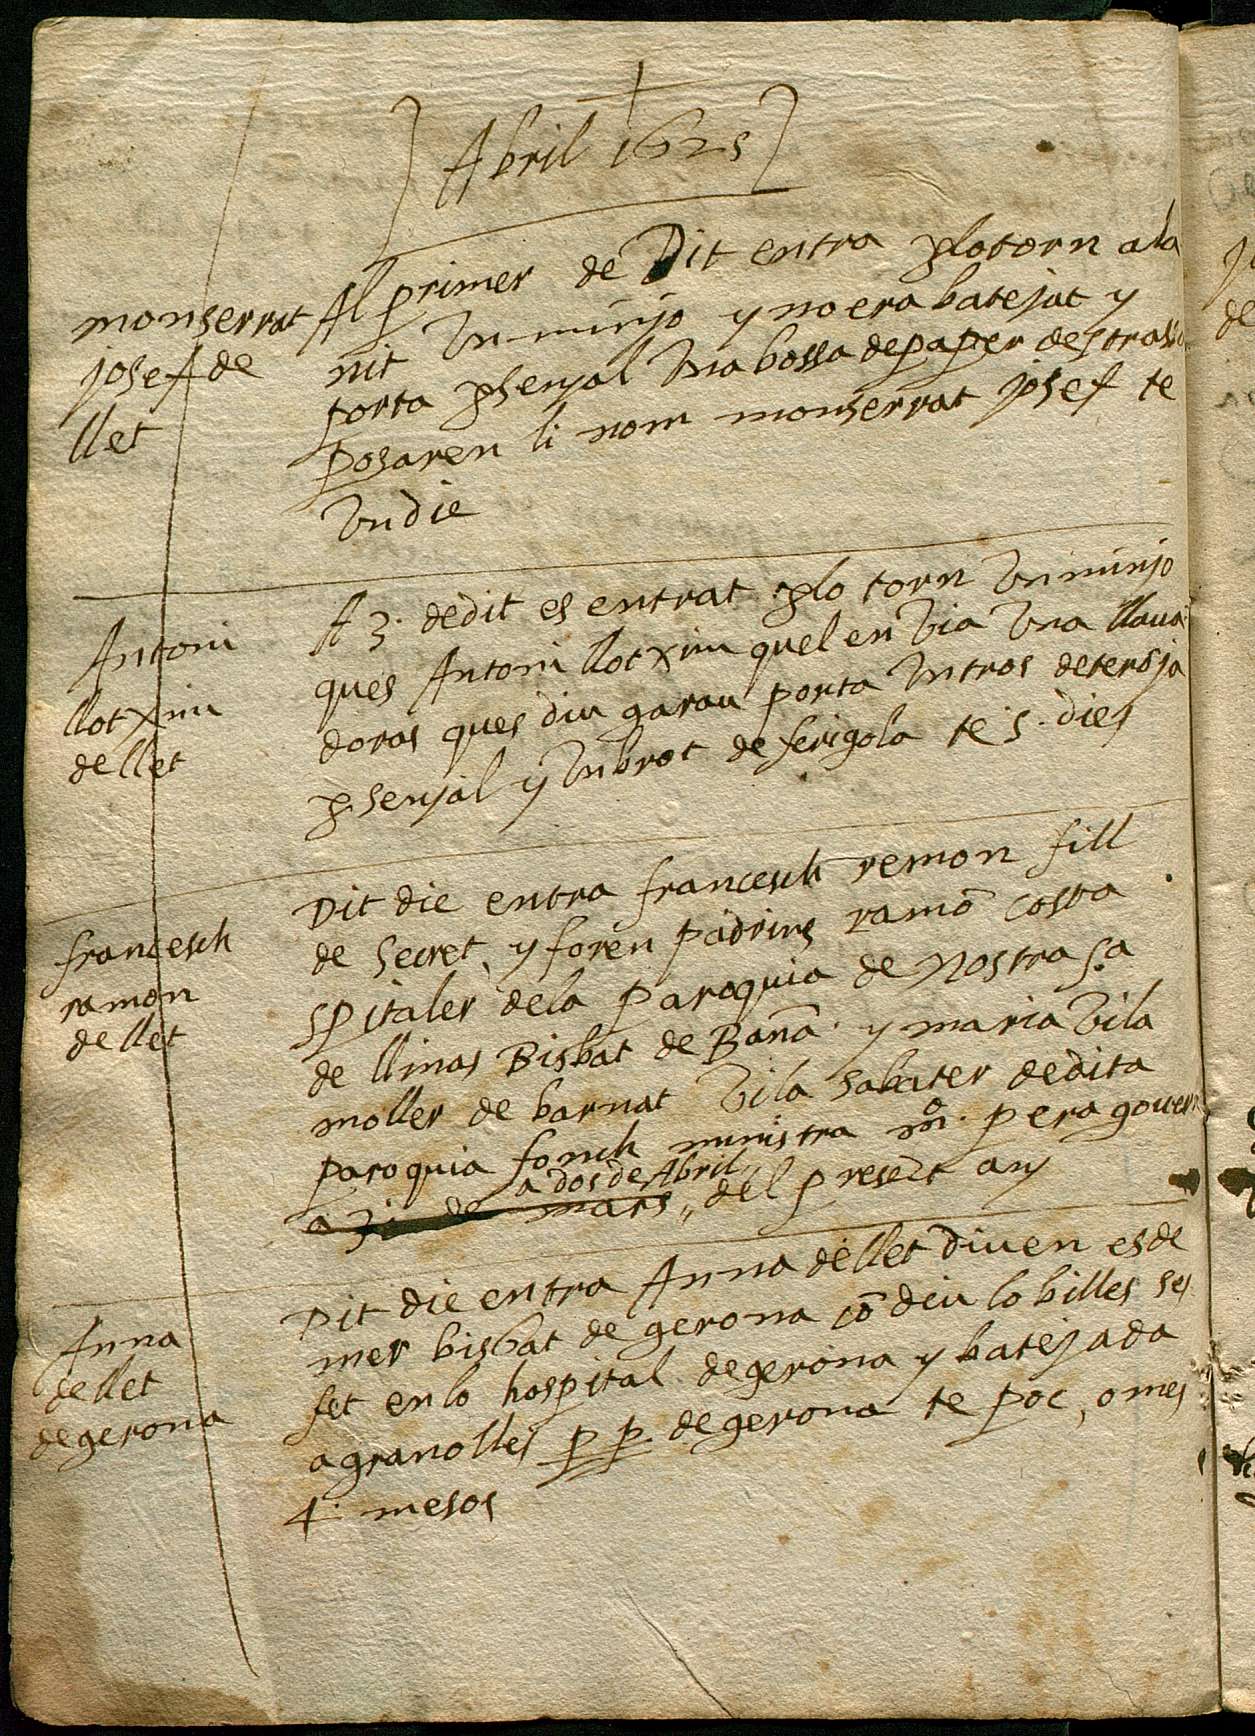 Abril 1625
monserrat
josef de
llet
Al primer de Dit entra plo torn ala
nit Un minjo y no era batejat y
porta p senyal Una bossa de paper destrassa
posaren li nom monserrat josef te
Un die
Antoni
llotxim
de llet
A 3. de dit es entrat plo torn Un minjo
ques Antoni llotxim quel en Via Una llaua
doras ques diu garau porta Un tros de
p senyal y Un brot de ferigola te 5. dies
francesch
ramon
de llet
Dit die entra francesch remon fill
de secret y foren padrins ramō costa
spitaler dela paroquia de nostra Sa
de llinas Bisbat de Bana. y maria Vila
moller de barnat Vila sabater de dita
paroquia fonch ministra mo. pera gouern
a dos de Abril
a 31 de mars,, del present any
Anna
de llet
de gerona
Dit die entra Anna de llet diuen es de
mer bisbat de gerona cō diu lo billes ses
fet en lo hospital de gerona y batejada
a granolles p p. de gerona te poc, o mes
4. mesos